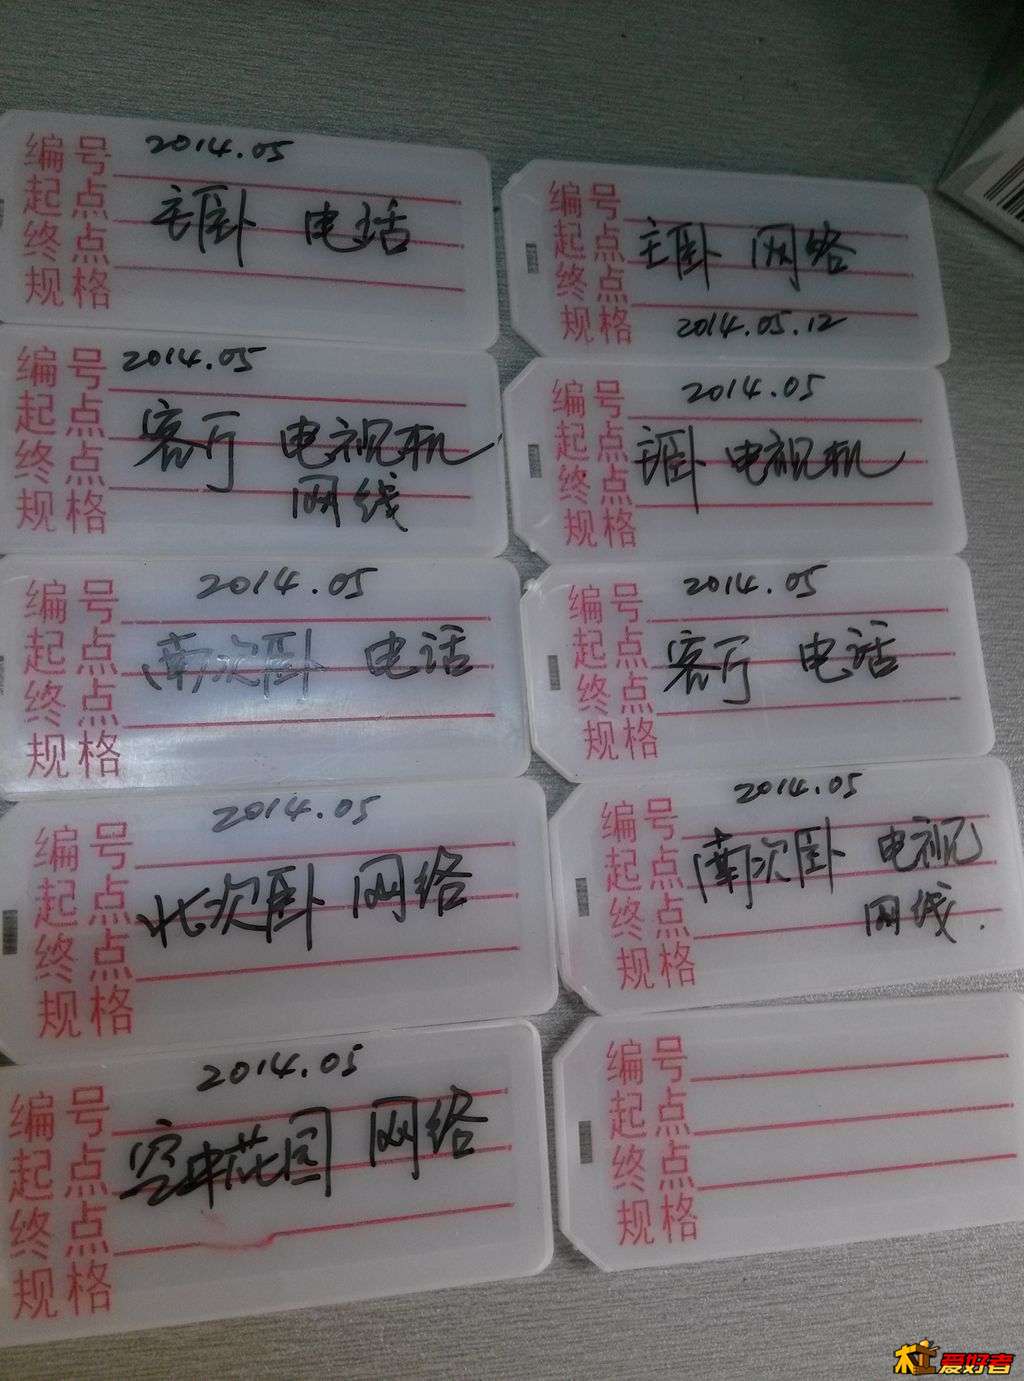 编号 2014.05
起点 主卧 电话
终点
规格
编号
起点 主卧 网络
终点
规格 2014.05.12
编号 2014.05
起点 客厅 电视机
终点 网线
规格
编号 2014.05
起点 主卧 电视机
终点
规格
编号 2014.05
起点 南次卧 电话
终点
规格
编号 2014.05
起点 客厅 电话
终点
规格
编号 2014.05
起点 北次卧 网络
终点
规格
编号 2014.05
起点 南次卧 电视
终点 网线.
规格
编号 2014.05
起点 空中花园 网络
终点
规格
编号
起点
终点
规格
爱好者